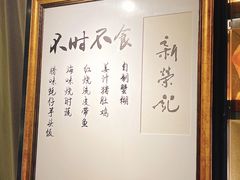 不时不食
新榮記
自制蟹糊
姜汁猪肚鸡
红烧皮带鱼
海味烧时蔬
腊味蚝仔芋头饭